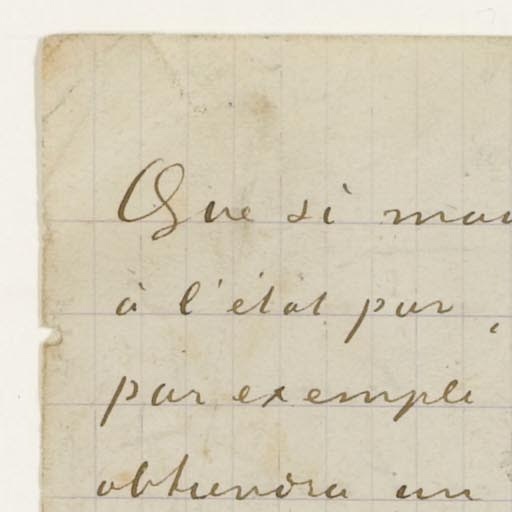 Que si mau
à l'état pur,
par exemple
obtiendra un